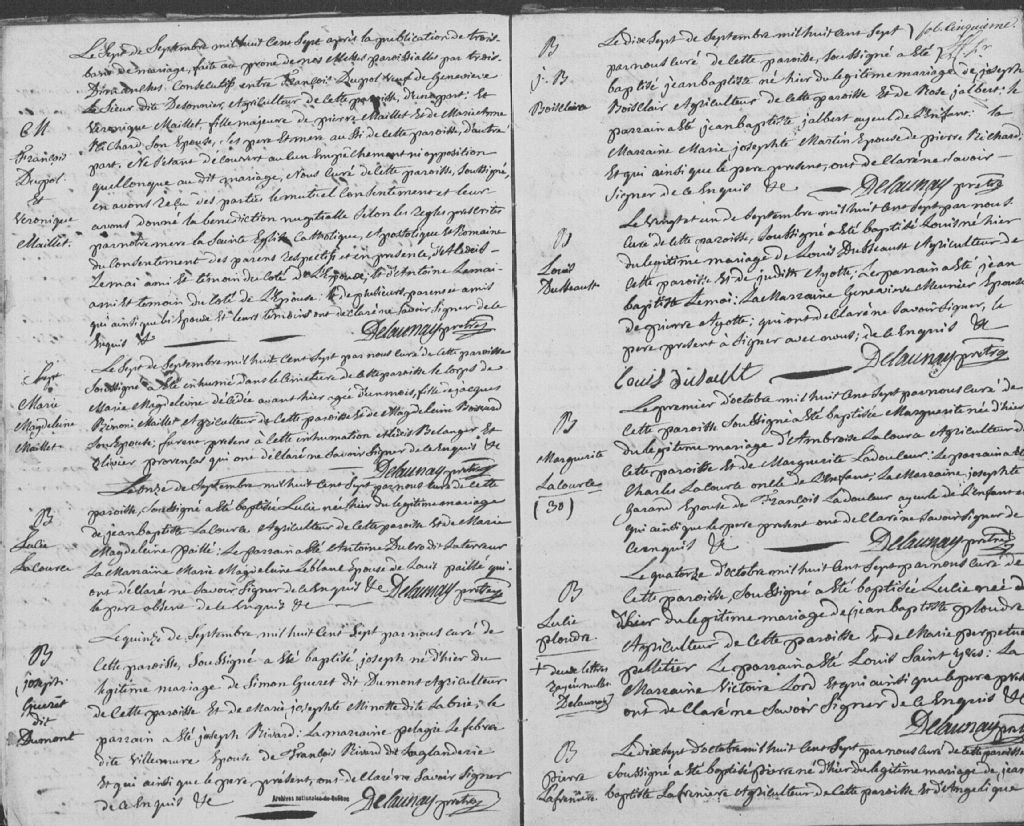 Le Sept de Septembre mil huit Cent Sept après la publication de trois
bans de mariage, faite au prone de nos Messes paroissialles par trois
Dimanches Consecutifs entre François Dupol Veuf de Genevieve
Le Sieur dit Delonnier, Agriculteur de cette paroisse, d'une part; et
C M.
François
Dupol
Et
Veronique
Maillet.
Veronique Maillet, fille majeure de pierre Maillet Et de Marie Anne
Richard Son Epouse, Les pere Et mere aussi de cette paroisse, d'autre
part. Ne S'etant decouvert aucun Empêchement ni opposition
quelconque au dit mariage, Nous Curé de cette paroisse, Soussigné,
en avons reçu des parties le mutuel Consentement et leur
avons donné la benediction nuptialle Selon les regles prescrites
par notre mere la Sainte Eglise Catholique, Apostolique et Romaine
du Consentement des parens respectifs et en presence,
Lemai ami Et témoin du Coté de L'Epoux, d'Antoine Lemai
ami Et temoin du Coté de L'Epouse: de plusieurs parens et amis
qui ainsi que les Epoux Et leurs temoins ont déclaré ne Savoir Signer de le
Enquis &c Delaunay prêtre
Sept
Marie
Magdeleine
Maillet.
Le Sept de Septembre mil huit Cent Sept par nous curé de cette paroisse
Soussigné a Eté inhumé dans le Cimetiere de cette paroisse le Corps de
Marie Magdeleine décédée avant hier agée d'un mois, fille de jacques
Benoni Maillet Agriculteur de cette paroisse Et de Magdeleine
Son Epouse; furent presens à cette inhumation Alexis Belanger Et
Olivier provençal qui ont déclaré ne Savoir Signer de le Enquis &c
Delaunay prêtre
B
Lulie
La Course
Le onze de Septembre mil huit Cent Sept par nous Curé de cette
paroisse, Soussigné a Eté baptisée Lulie née hier du legitime mariage
de jean baptiste La Course, Agriculteur de cette paroisse Et de Marie
Magdeleine paillé: Le parrain a Eté Antoine Dubro dit Laterreur
La Marraine Marie Magdeleine Leblanc Epouse de Louis paillé qui
ont déclaré ne Savoir Signer de le Enquis &c Delaunay prêtre
le pere absent de le Enquis &c
B
joseph
Gueret
dit
Dumont
Le quinze de Septembre mil huit Cent Sept par nous curé de
Cette paroisse, Soussigné a Eté baptisé joseph né d'hier du
legitime mariage de Simon Gueret dit Dumont Agriculteur
de Cette paroisse Et de Marie josephte Minotte dit Labrie; le
parrain a Eté joseph Rivard: la marraine pelagie Lefebvre
dite Villemure Epouse de François Rivard dit Laglanderie
Et qui ainsi que le pere présent, ont declaré ne Savoir Signer
de le Enquis &c Delaunay prêtre
Archives nationales du Québec
fol. Cinquieme.
B
J. B
Boisclaire
Le dix Sept de Septembre mil huit Cent Sept
par nous curé de cette paroisse, Soussigné a Eté
baptisé jean baptiste né hier du legitime mariage de joseph
Boisclair Agriculteur de cette paroisse Et de Rose jalbert: le
parrain a Eté jean baptiste jalbert ayeul de l'Enfant: la
Marraine Marie josephte Martin Epouse de pierre Richard,
Et qui ainsi que le pere present, ont declaré ne Savoir
Signer de le Enquis &c Delaunay prêtre
B
Louis
Dusseault
Le vingt et un de Septembre mil huit Cent Sept par nous
Curé de cette paroisse, Soussigné a Eté baptisé Louis né hier
du legitime mariage de Louis Dusseault Agriculteur de
Cette paroisse Et de judith Ayotte; Le parrain a Eté jean
baptiste Lemai: La Marraine Genevieve Meunier Epouse
de pierre Ayotte; qui ont declaré ne Savoir Signer, le
pere present a Signer avec nous; de le Enquis &c
Delaunay prêtre
Louis dusault
B
Marguerite
La Course
(30)
Le premier d'octobre mil huit Cent Sept par nous curé de
Cette paroisse Soussigné a Eté baptisée Marguerite née d'hier
du legitime mariage d'Ambroise La Course Agriculteur de
Cette paroisse Et de Marguerite Ladouleur: Le parrain a Eté
Charles La Course oncle de l'Enfant: La Marraine josephte
Garand Epouse de François Ladouleur ayeule de l'Enfant et
qui ainsi que le pere present ont declaré ne Savoir Signer de
ce enquis &c Delaunay prêtre
B
Lulie
plondre.
+ deux lettres
rayées nulles
Delaunay
Le quatorze d'octobre mil huit Cent Sept par nous curé de
Cette paroisse Soussigné a Eté baptisée Lulie née d
hier du legitime mariage de jean baptiste plondre
Agriculteur de Cette paroisse Et de Marie perpetue
pelletier Le parrain a Eté Louis Saint yves: La
Marraine Victoire Lord Et qui ainsi que le pere present
ont declaré ne Savoir Signer de le Enquis &c
Delaunay prêtre
B
pierre
Lafreniere.
Le dix Sept d'octobre mil huit Cent Sept par nous Curé de cette paroisse
Soussigné a Eté baptisé pierre né d'hier du legitime mariage de jean
baptiste Lafreniere Agriculteur de Cette paroisse Et d'Angelique